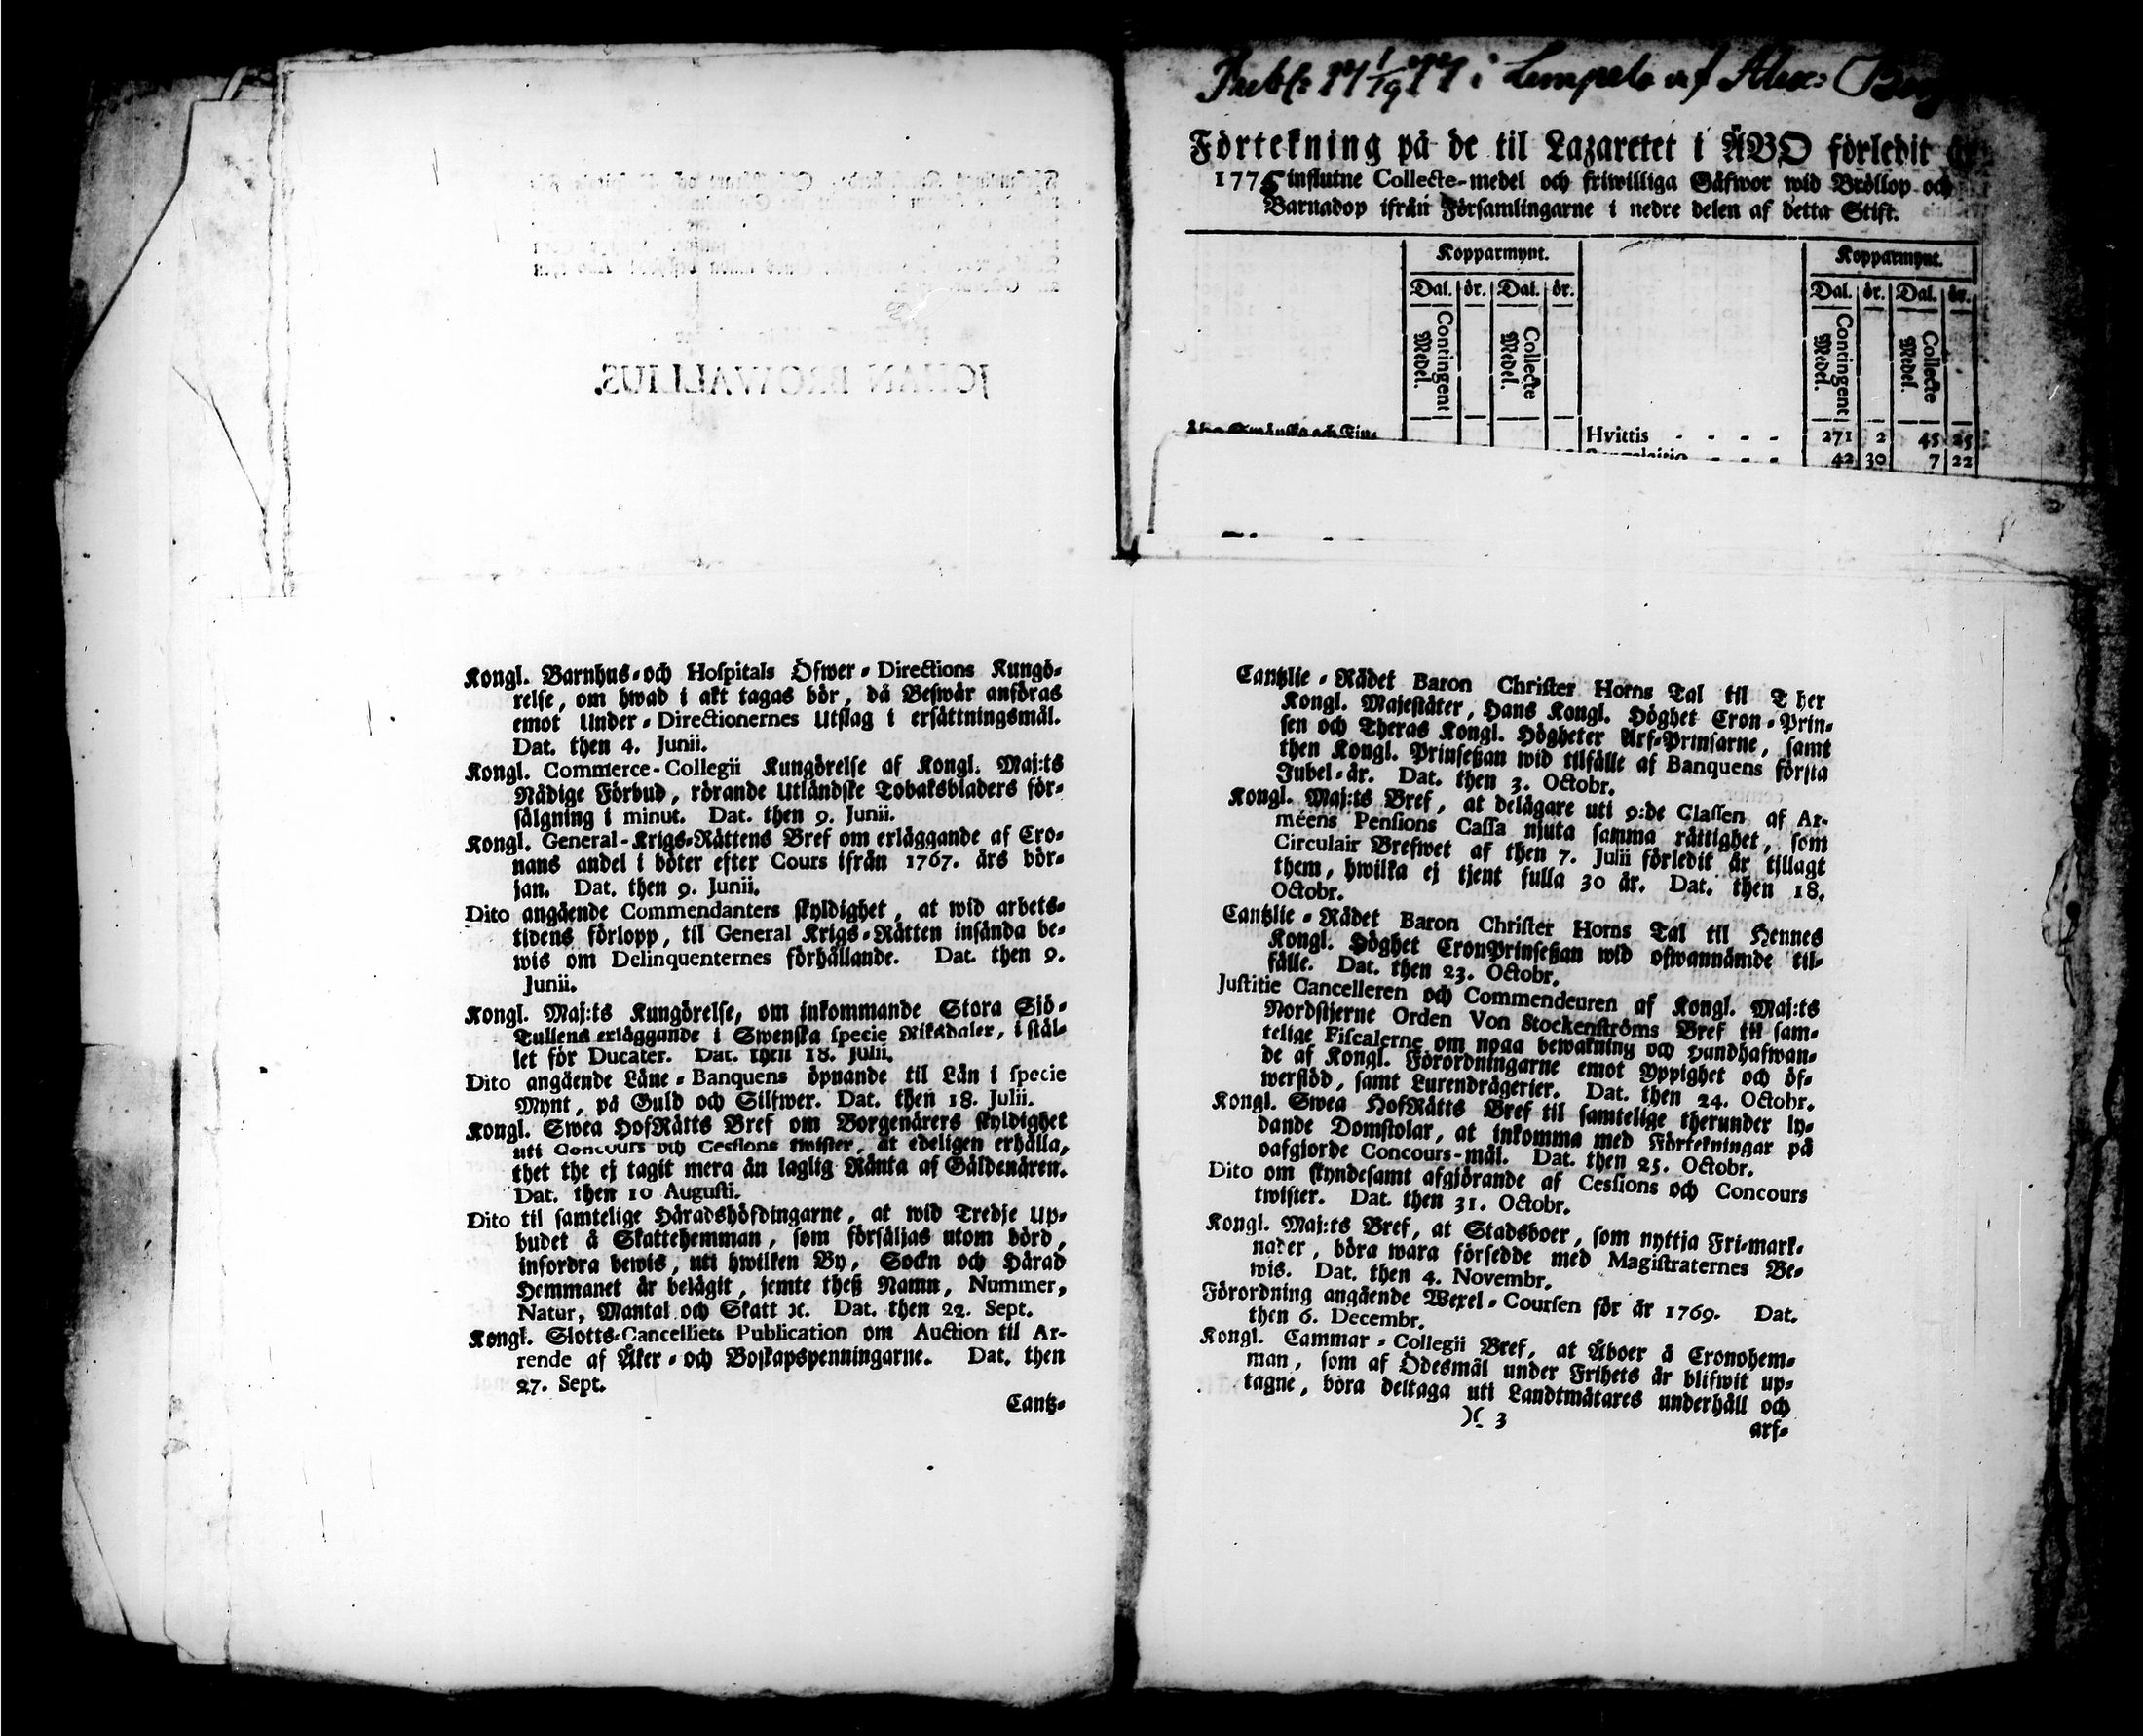 JOHAN BROWALLIUS.
Kongl. Barnhus-och Hoſpitals Öfwer-Directions Kungö-
relſe, om hwad i akt tagas bör, då Beſwär anföras
emot Under-Directionernes Utſlag i erſättningsmål.
Dat. then 4. Junii.
Kongl. Commerce-Collegii Kungörelſe af Kongl. Maj:ts
Nådige Förbud, rörande Utländſke Tobaksbladers för-
ſälgning i minut. Dat. then 9. Junii.
Kongl. General-Krigs-Rättens Bref om erläggande af Cro-
nans andel i böter efter Cours ifrån 1767. års bör-
jan. Dat. then 9. Junii.
Dito angående Commendanters ſkyldighet, at wid arbets-
tidens förlopp, til General Krigs-Rätten inſända be-
wis om Delinquenternes förhållande. Dat. then 9.
Junii.
Kongl. Maj:ts Kungörelſe, om inkommande Stora Sjö-
Tullens erläggande i Swenſka ſpecie Riksdaler, i ſtäl-
let för Ducater. Dat. then 18. Julii.
Dito angående Låne-Banquens öpnande til Lån i ſpecie
Mynt, på Guld och Silfwer. Dat. then 18. Julii.
Kongl. Swea HofRätts Bref om Borgenärers ſkyldighet
uti Concours och Ceſſions twiſter, at edeligen erhålla,
thet the ej tagit mera än laglig Ränta af Gäldenären.
Dat. then 10 Auguſti.
Dito til ſamtelige Häradshöfdingarne, at wid Tredje Up-
budet å Skattehemman, ſom förſäljas utom börd,
infordra bewis, uti hwilken By, Sockn och Härad
Hemmanet är belägit, jemte theß Namn, Nummer,
Natur, Mantal och Skatt ꝛc. Dat. then 22. Sept.
Kongl. Slotts-Cancelliets Publication om Auction til Ar-
rende af Åker-och Boſkapspenningarne. Dat. then
27. Sept.
Cantz-
Publ: i Lempele af Alex:
Förtekning på de til Lazaretet i ÅBO förledit
1775 influtne Collecte-medel och friwilliga Gåfwor wid Bröllop och
Barnadop ifrån Förſamlingarne i nedre delen af detta Stift.
Kopparmynt. Kopparmynt.
Dal. ör. Dal. ör. Dal. ör. Dal. ör.
Contingent Medel. Collecte Medel. Contingent Medel. Collecte Medel.
Hvittis - - - - 271 2 45 25
- - - 42 30 7 22
Cantzlie-Rådet Baron Chriſter Horns Tal til Ther
Kongl. Majeſtäter, Hans Kongl. Höghet Cron-Prin-
ſen och Theras Kongl. Högheter Arf-Prinſarne, ſamt
then Kongl. Prinſeßan wid tilfälle af Banquens förſta
Jubel-år. Dat. then 3. Octobr.
Kongl. Maj:ts Bref, at delägare uti 9:de Claſſen af Ar-
méens Penſions Caſſa njuta ſamma rättighet, ſom
Circulair Brefwet af then 7. Julii förledit år tillagt
them, hwilka ej tjent fulla 30 år. Dat. then 18.
Octobr.
Cantzlie-Rådet Baron Chriſter Horns Tal til Hennes
Kongl. Höghet CronPrinſeßan wid ofwannämde til-
fälle. Dat. then 23. Octobr.
Juſtitie Cancelleren och Commendeuren af Kongl. Maj:ts
Nordſtjerne Orden Von Stockenſtröms Bref til ſam-
telige Fiſcalerne om noga bewakning och Handhafwan-
de af Kongl. Förordningarne emot Yppighet och öf-
werflöd, ſamt Lurendrägerier. Dat. then 24. Octobr.
Kongl. Swea HofRätts Bref til ſamtelige therunder ly-
dande Domſtolar, at inkomma med Förtekningar på
oafgjorde Concours-mål. Dat. then 25. Octobr.
Dito om ſkyndeſamt afgjörande af Ceſſions och Concours
twiſter. Dat. then 31. Octobr.
Kongl. Maj:ts Bref, at Stadsboer, ſom nyttja Fri-mark-
nader, böra wara förſedde med Magiſtraternes Be-
wis. Dat. then 4. Novembr.
Förordning angående Wexel-Courſen för år 1769. Dat.
then 6. Decembr.
Kongl. Cammar-Collegii Bref, at Åboer å Cronohem-
man, ſom af Ödesmål under Frihets år blifwit up-
tagne, böra deltaga uti Landtmätares underhåll och
)( 3
arf-